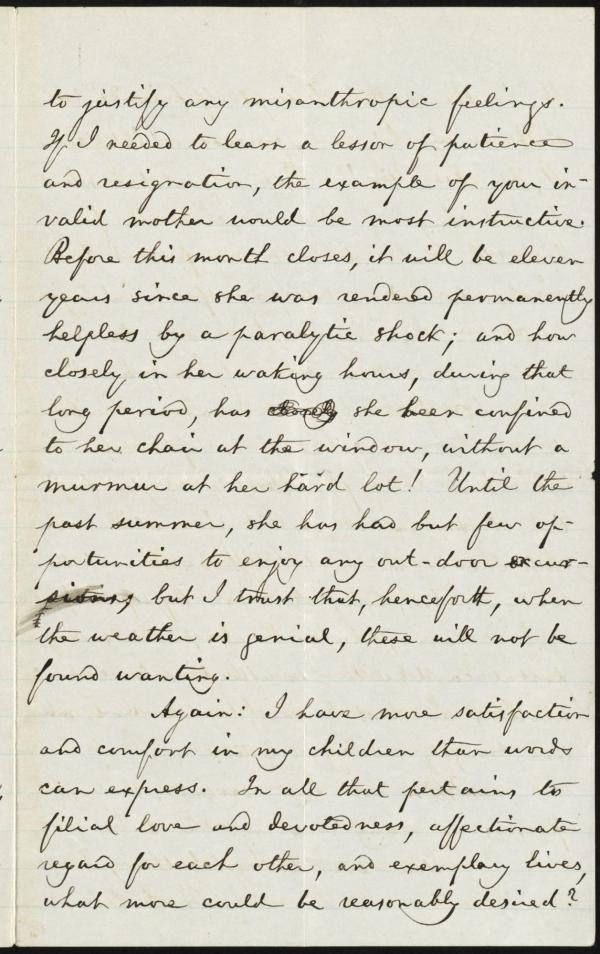 to justify any misanthropic feelings.
If I needed to learn a lesson of patience
and resignation, the example of your in-
valid mother would be most instructive.
Before this month closes, it will be eleven
years since she was rendered permanently
helpless by a paralytic shock; and how
closely in her waking hours, during that
long period, has she been confined
to her chair at the window, without a
murmur at her hard lot! Until the
past summer, she has had but few op-
portunities to enjoy any out-door excur-
sions; but I trust that, henceforth, when
the weather is genial, these will not be
found wanting.
Again: I have more satisfaction
and comfort in my children than words
can express. In all that pertains to
filial love and devotedness, affectionate
regard for each other, and exemplary lives,
what more could be reasonably desired?